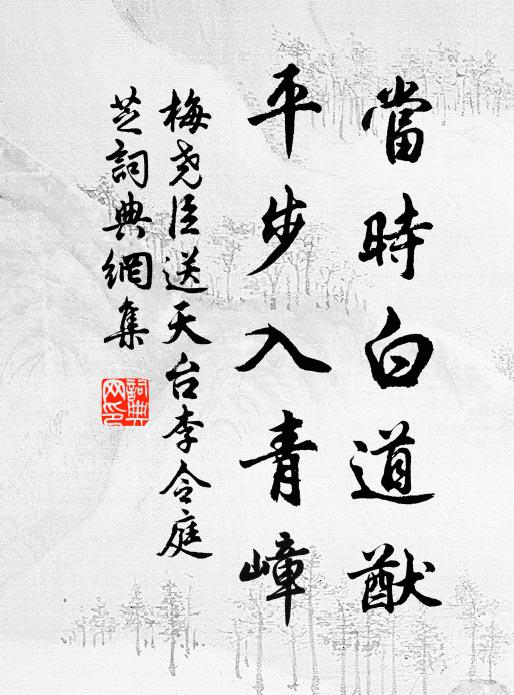 當時白道猷
平步入青嶂
梅堯臣送天台李令庭
芝詞典網集
詞典
网印